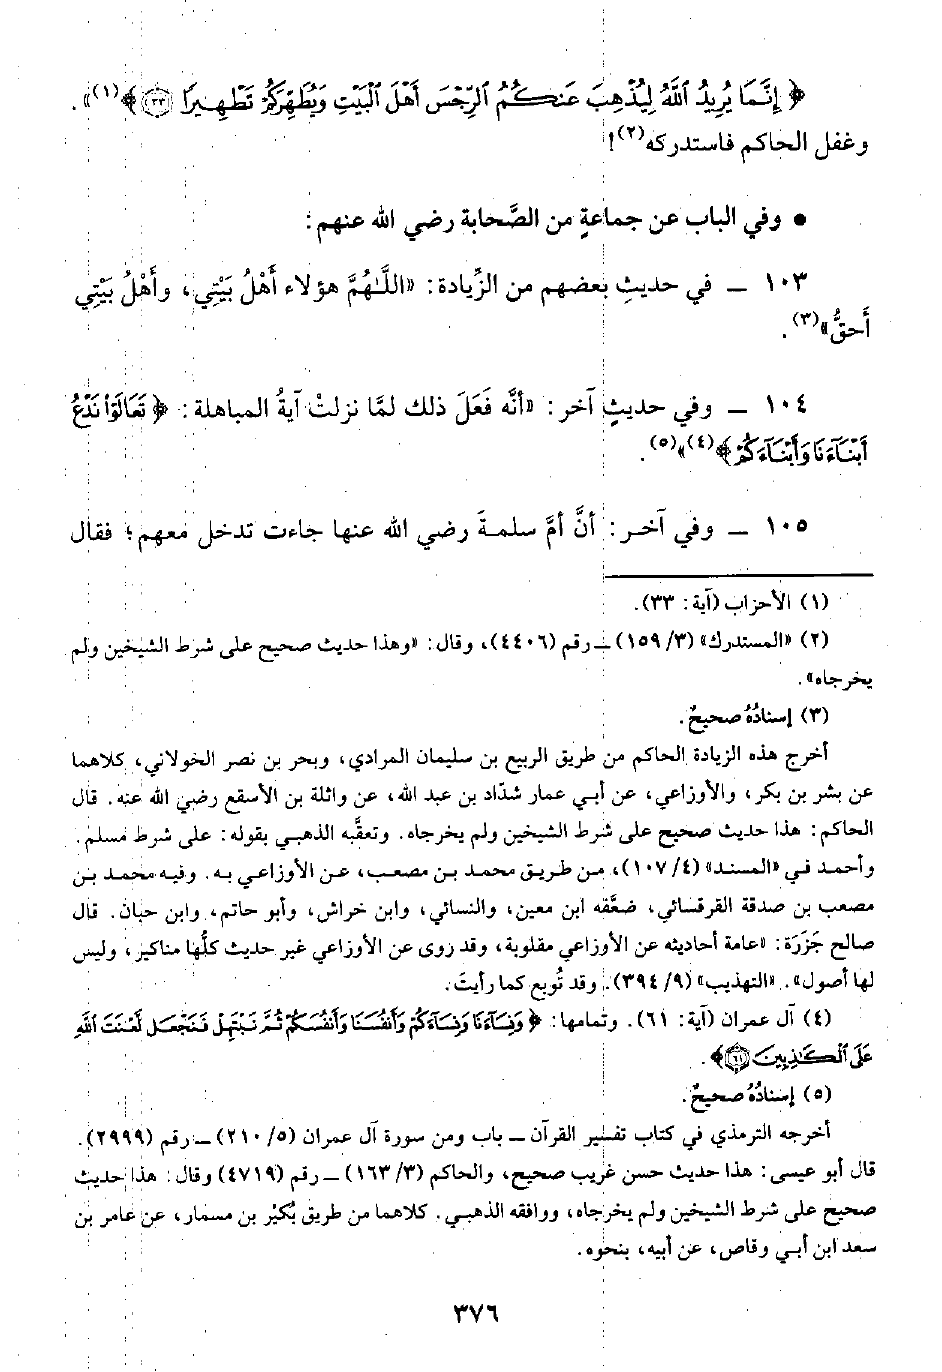 ﴿ إِنَّمَا يُرِيدُ ٱللَّهُ لِيُذْهِبَ عَنكُمُ ٱلرِّجْسَ أَهْلَ ٱلْبَيْتِ وَيُطَهِّرَكُمْ تَطْهِيرًا ۝٣٣ ﴾(١)».
وغفل الحاكم فاستدركه(٢)!
● وفي الباب عن جماعةٍ من الصَّحابة رضي الله عنهم:
١٠٣ ـ في حديثِ بعضهم من الزِّيادة: «اللَّـٰهُمَّ هؤلاء أَهْلُ بَيْتِي، وأَهْلُ بَيْتِي
أَحقُّ»(٣).
١٠٤ ـ وفي حديثٍ آخر: «أنَّه فَعَلَ ذلك لمَّا نزلتْ آيةُ المباهلة: ﴿ تَعَالَوْا۟ نَدْعُ
أَبْنَآءَنَا وَأَبْنَآءَكُمْ ﴾(٤)»(٥).
١٠٥ ـ وفي آخر: أنَّ أمَّ سلمةَ رضي الله عنها جاءت تدخل معهم؛ فقال
(١) الأحزاب (آية: ٣٣).
(٢) «المستدرك» (٣/ ١٥٩) ـ رقم (٤٤٠٦)، وقال: «وهذا حديث صحيح على شرط الشيخين ولم
يخرجاه».
(٣) إسنادُهُ صحيحٌ.
أخرج هذه الزيادة الحاكم من طريق الربيع بن سليمان المرادي، وبحر بن نصر الخولاني، كلاهما
عن بشر بن بكر، والأوزاعي، عن أبي عمار شدّاد بن عبد الله، عن واثلة بن الأسقع رضي الله عنه. قال
الحاكم: هذا حديث صحيح على شرط الشيخين ولم يخرجاه. وتعقَّبه الذهبي بقوله: على شرط مسلم.
وأحمد في «المسند» (٤/ ١٠٧)، من طريق محمد بن مصعب، عن الأوزاعي به. وفيه محمد بن
مصعب بن صدقة القرقسائي، ضعَّفه ابن معين، والنسائي، وابن خراش، وأبو حاتم، وابن حبان. قال
صالح جَزَرَة: «عامة أحاديثه عن الأوزاعي مقلوبة، وقد روى عن الأوزاعي غير حديث كلُّها مناكير، وليس
لها أصول». «التهذيب» (٩/ ٣٩٤). وقد تُوبع كما رأيتَ.
(٤) آل عمران (آية: ٦١). وتمامها: ﴿ وَنِسَآءَنَا وَنِسَآءَكُمْ وَأَنفُسَنَا وَأَنفُسَكُمْ ثُمَّ نَبْتَهِلْ فَنَجْعَل لَّعْنَتَ ٱللَّهِ
عَلَى ٱلْكَـٰذِبِينَ ۝٦١ ﴾.
(٥) إسنادُهُ صحيحٌ.
أخرجه الترمذي في كتاب تفسير القرآن ـ باب ومن سورة آل عمران (٥/ ٢١٠) ـ رقم (٢٩٩٩).
قال أبو عيسى: هذا حديث حسن غريب صحيح، والحاكم (٣/ ١٦٣) ـ رقم (٤٧١٩) وقال: هذا حديث
صحيح على شرط الشيخين ولم يخرجاه، ووافقه الذهبي. كلاهما من طريق بُكَيْر بن مسمار، عن عامر بن
سعد ابن أبي وقاص، عن أبيه، بنحوه.
٣٧٦